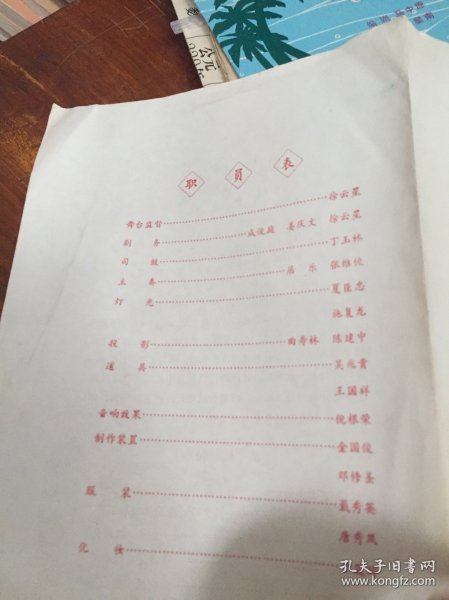 公元
职员表
舞台监督……………………徐云星
剧务……………成俊庭 姜庆文 徐云星
司鼓……………………丁玉林
主奏……………………居乐 张维俊
灯光……………………夏臣忠
施复龙
投影……………………曲寿林 陈建中
道具……………………吴兆贵
王国祥
音响效果……………………倪根荣
制作装置……………………金国俊
邓修圣
服装……………………戴秀英
唐秀凤
化妆……………………
孔夫子旧书网
www.kongfz.com